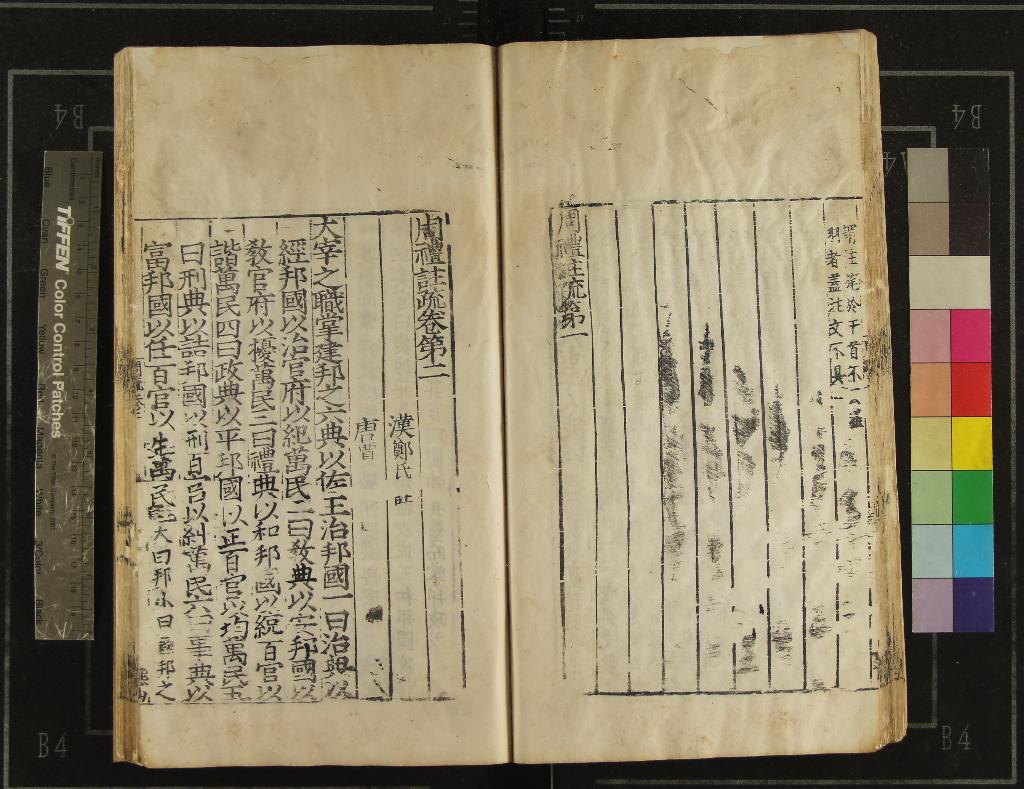 謂主第冷于首不
明者蓋註文不具
周禮註疏第一
周禮註疏卷第二
漢鄭氏註
唐賈
大宰之職掌建邦之六典以佐王治邦國一曰治典以
經邦國以治官府以紀萬民二曰敎典以安邦國以
敎官府以擾萬民三曰禮典以和邦國以統百官以
諧萬民四曰政典以平邦國以正百官以均萬民五
曰刑典以詰邦國以刑百官以糾萬民六曰事典以
富邦國以任百官以生萬民大曰邦小曰國邦之
TIFFEN Color Control Patches
Blue
Cyan
Green
Yellow
Black
B4
B4
B4
B4